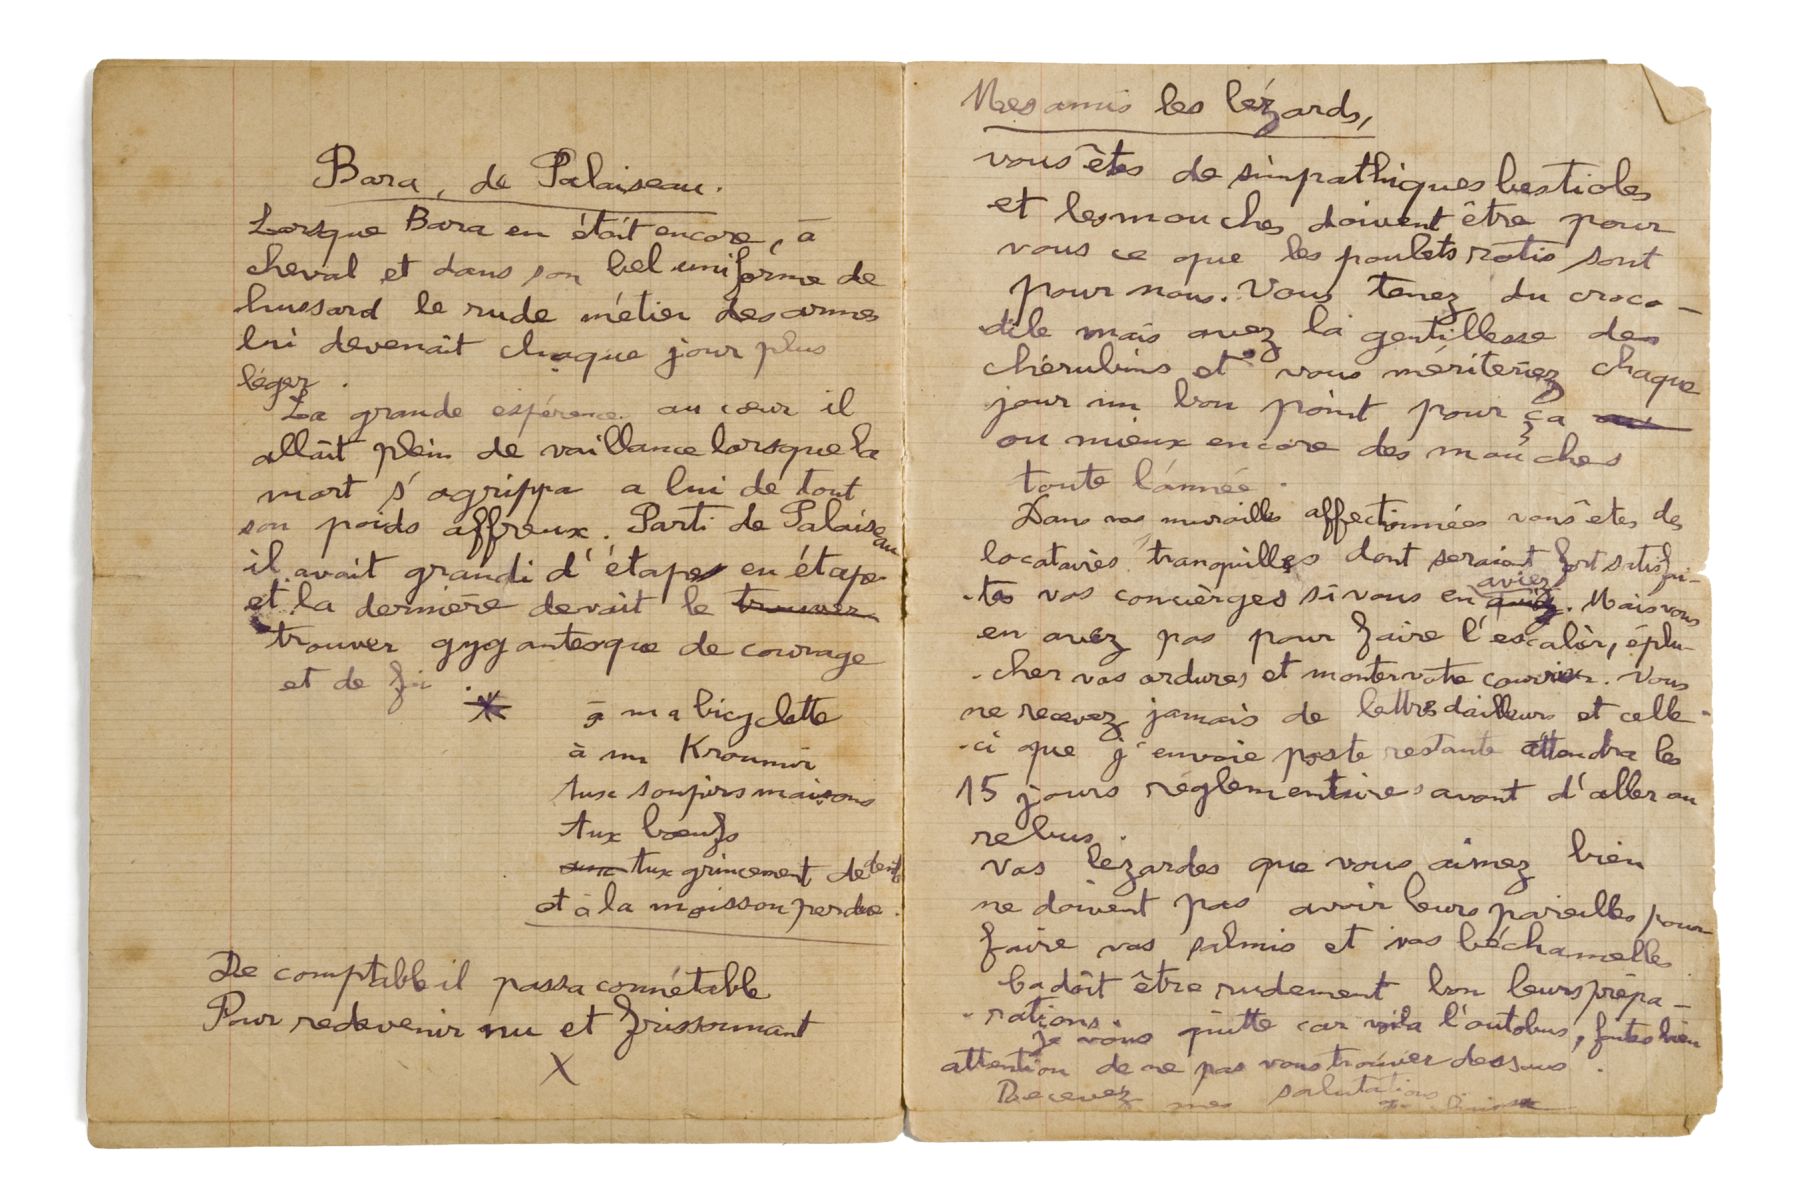 Bara, de Palaiseau.
Lorsque Bara en était encore, à
cheval et dans son bel uniforme de
hussard le rude métier des armes
lui devenait chaque jour plus
léger.
La grande espérence au cœur il
allait plein de vaillance lorsque la
mort s'agrippa a lui de tout
son poids affreux. Parti de Palaiseau
il avait grandi d'étape en étape
et la dernière devait le trouver
trouver gygantesque de courage
et de foi.
*
à ma bicyclette
à un Kroumir
Aux soupirs maisons
Aux bœufs
aux Aux grincement de dents
et à la moisson perdue.
De comptable il passa connétable
Pour redevenir nu et frissonnant
X
Mes amis les lézards,
vous êtes de simpathiques bestioles
et les mouches doivent être pour
vous ce que les poulets rotis sont
pour nous. Vous tenez du croco-
dile mais avez la gentillesse des
chérubins et vous mériteriez chaque
jour un bon point pour ça
ou mieux encore des mouches
toute l'année.
Dans vos murailles affectionnées vous êtes des
locataires tranquilles dont seraient fort satisfai-
-tes vos concièrges si vous en aviez. Mais vous
en avez pas pour faire l'escalier, éplu-
-cher vos ordures et monter votre courrier. Vous
ne recevez jamais de lettres d'ailleurs et celle-
-ci que j'envoie poste restante attendra les
15 jours réglementaires avant d'aller au
rebus.
Vos lézardes que vous aimez bien
ne doivent pas avoir leurs pareilles pour
faire vos salmis et vos béchamelles
ça doit être rudement bon leurs prépa-
-rations.
Je vous quitte car voila l'autobus, faites bien
attention de ne pas vous trouver dessous.
Recevez mes salutations